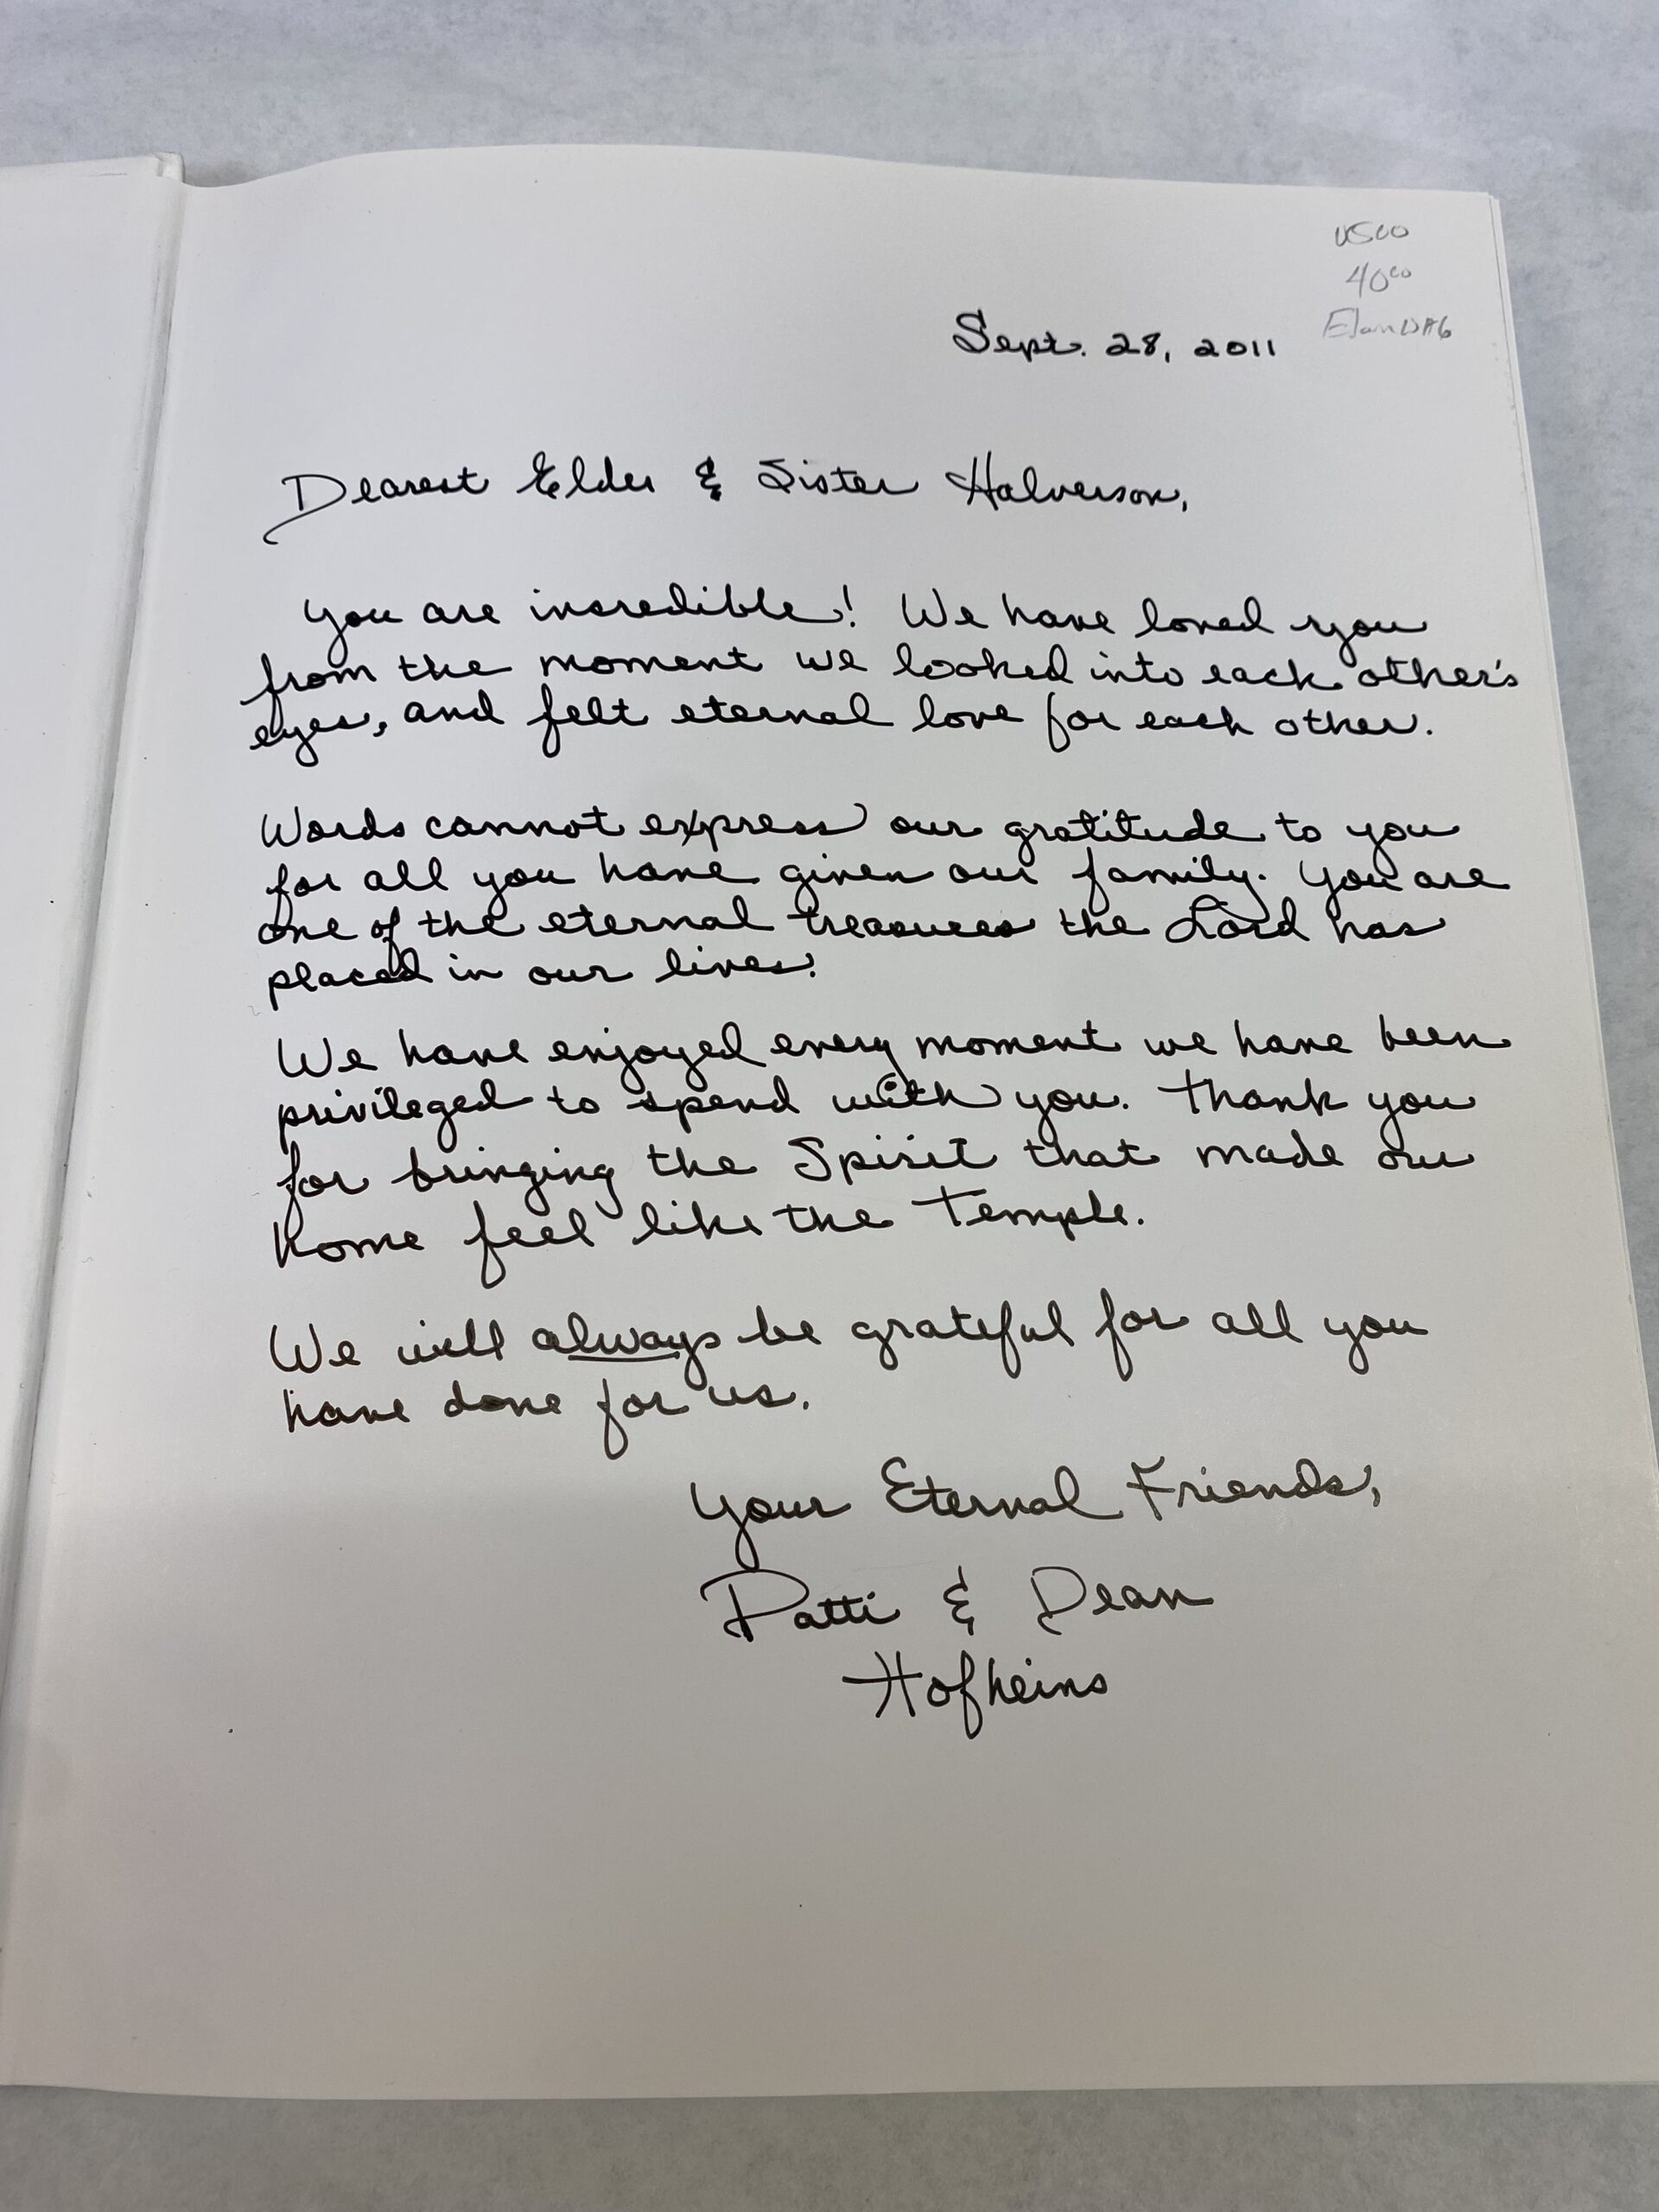 40⁰⁰
Sept. 28, 2011
Dearest Elder & Sister Halverson,
You are incredible! We have loved you
from the moment we looked into each other's
eyes, and felt eternal love for each other.
Words cannot express our gratitude to you
for all you have given our family. You are
one of the eternal treasures the Lord has
placed in our lives!
We have enjoyed every moment we have been
privileged to spend with you. Thank you
for bringing the Spirit that made our
home feel like the Temple.
We will always be grateful for all you
have done for us.
Your Eternal Friends,
Patti & Dean
Hofheins